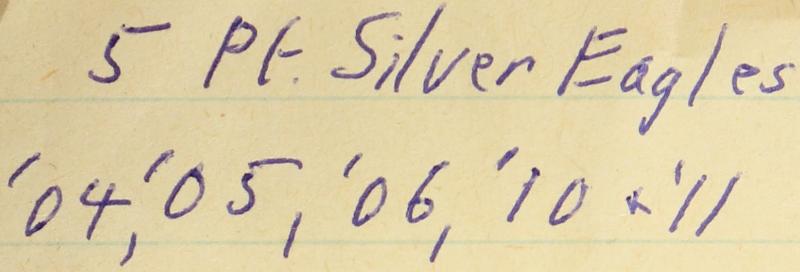 5 Pf. Silver Eagles
'04, '05, '06, '10 & '11